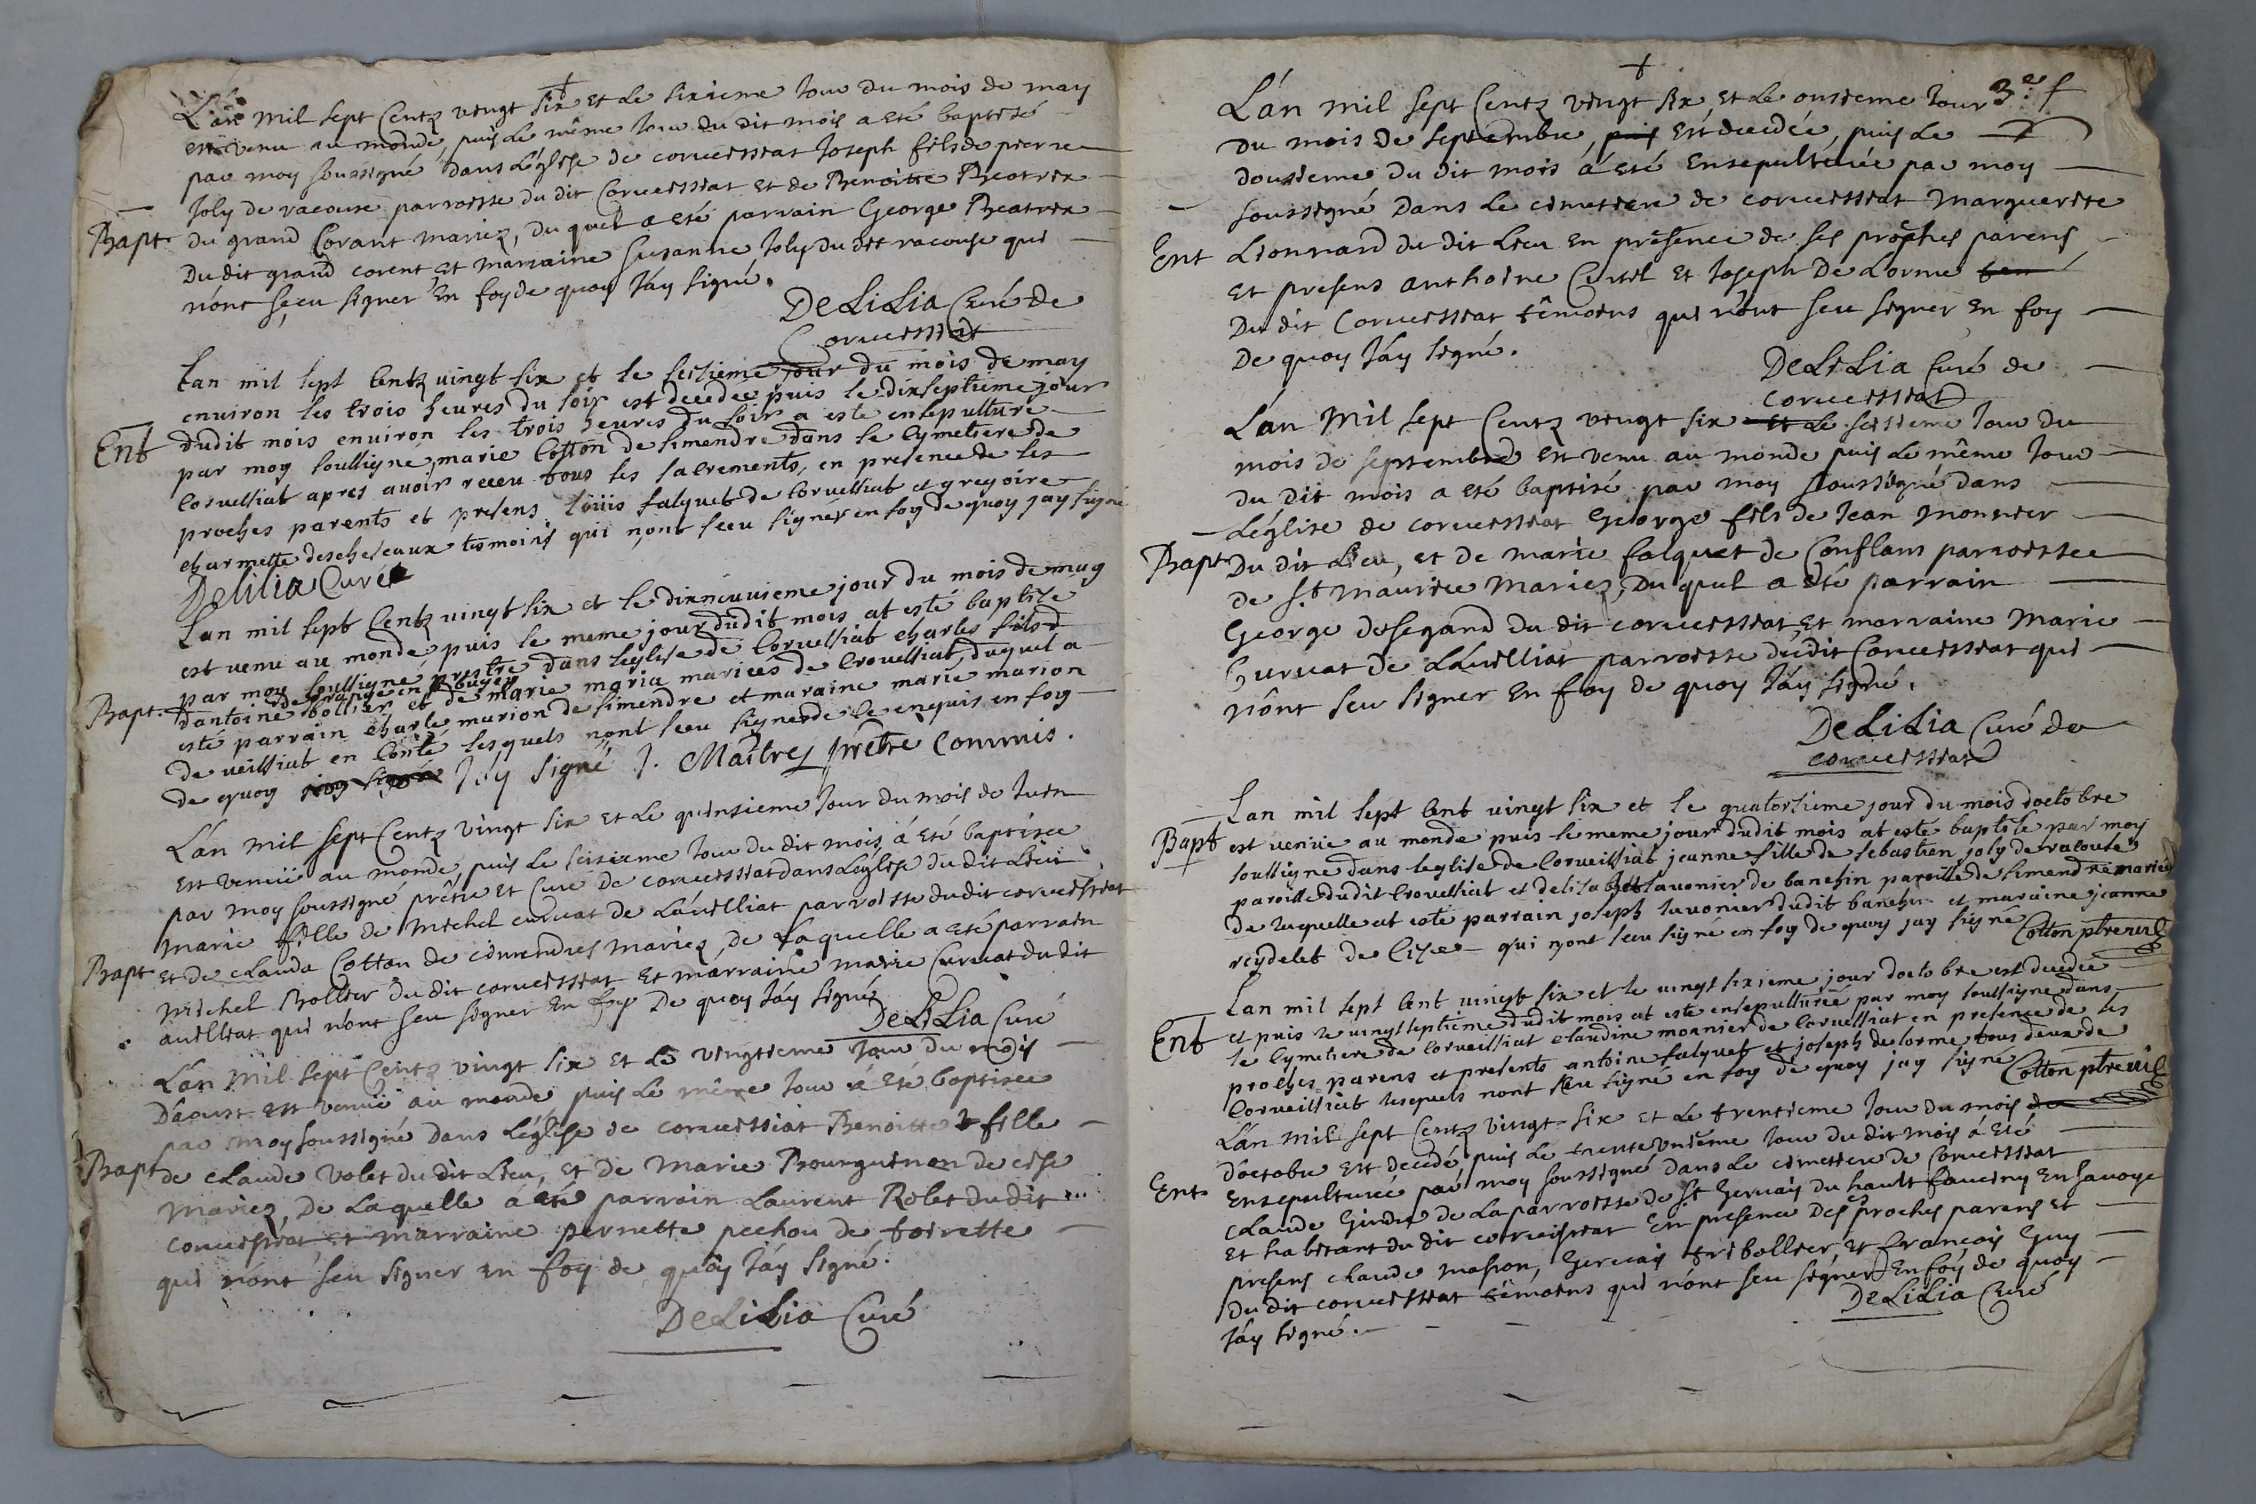 L'an mil sept Centz vingt six et le sixieme Jour du mois de may
est venu au monde, puis le même Jour du dit mois a eté baptisé
par moy soussigné dans L'église de corveissiat Joseph fils de pierre
Joly de racouse parroisse du dit Corveissiat et de Benoitte Beatrix
Bapt. du grand Corant mariez, du quel a eté parrain George Beatrix
Du dit grand corent et marraine Susanne Joly du dit racouse qui
n'ont sçeu signer En foy de quoy J'áy signé.
DeLiLia Curé de
Corveissiat
Lan mil sept Centz vingt six et le seisieme jour du mois de may
environ les trois heures du soir est decedee puis le dixseptieme jour
Ent dudit mois environ les trois heures du soir a este ensepulture
par moy soussigne, marie Cotton de simendre dans le Cymetiere de
Corvessiat apres avoir receu tous les sacrements, en presence de ses
proches parents et presens loüis falquet de Corvessiat et gregoire
charmette descheseaux tesmoins qui n'ont sceu signer en foy de quoy jay signé
Delilia Curé
Lan mil sept Centz vingt six et le dixneuvieme jour du mois de may
est venu au monde puis le meme jour dudit mois at esté baptize
par moy soussigne prestre dans leglise de Corvessiat charles fils
de grange en bugey
Bapt. d'antoine bollier et de marie maria mariés de Crovessiat, duquel a
esté parrain charle marion de simendre et maraine marie marion
de veissiat en Conté lesquels n'ont sceu signer de ce enquis en foy
de quoy jay signé J'ay signé J. Maîtrez prêtre Commis.
L'án mil sept Centz vingt six et le quinsieme Jour du mois de Juin
est venuë au monde, puis le seizieme Jour du dit mois á eté baptisee
par moy soussigné prêtre et Curé de corveissiat dans L'église du dit Lieu
marie fille de michel curvat de L'áveilliat parroisse du dit corveissiat
Bapt et de clauda Cotton de cimendres mariez, de laquelle a eté parrain
michel Bollier du dit corveissiat et márraine marie Curvat du dit
aveilliat qui n'ont seu signer En foy De quoy J'áy signé
DeLiLia Curé
L'án mil sept Centz vingt six et le vingtieme Jour du mois
D'âoust est venuë au monde puis le même Jour á eté baptisee
par moy soussigné dans L'église de corveissiat Benoitte fille
Bapt de claude volet du dit Lieu, et de marie Bourguinon de cise
mariez, De Laquelle a eté parrain Laurent Rolet du dit
corveissiat, et marraine pernette pechou de toirette
qui n'ont seu signer en foy de quoy J'áy signé.
DeLiLia Curé
3.e f
L'án mil sept Centz vingt six et le onsieme Jour
Du mois De septembre, puis est decedée, puis le
Dousieme du dit mois á eté Ensepulturée par moy
soussigné Dans le cimetiere de corveissiat marguerite
Ent Lionnard du dit Lieu En présence de ses proches parens
et presens anthoine Curtil et Joseph De Lorme
Du dit Corveissiat témoins qui n'ont seu signer En foy
De quoy J'áy signé.
DeLiLia Curé de
corveissiat
L'án Mil sept Centz vingt six et le seisieme Jour du
mois de septembre est venu au monde puis le même Jour
du dit mois a eté baptisé par moy soussigné dans
L'église de corveissiat George fils de Jean monnier
Bapt Du dit Lieu, et de marie falquet de Conflans parroisse
de S.t maurice mariez, Du quel a eté parrain
George desegand du dit corveissiat, et marraine Marie
Curvat de L'áveilliat parroisse du dit Corveissiat qui
n'ônt seu signer En foy de quoy J'áy signé.
DeLiLia Curé de
corveissiat
Lan mil sept Cent vingt six et le quatorsieme jour du mois doctobre
Bapt est venüe au monde puis le meme jour dudit mois at este baptisée par moy
soussigne dans leglise de Corveissiat jeanne fille de sebastien joly de racouse
paroisse dudit Crovessiat et delisabet savonier de banchin paroisse de simendre mariés
de laquelle at esté parrain joseph savonier dudit banchin et maraine jeanne
reydelet de Cize qui n'ont sceu signé en foy de quoy jay signe Cotton ptre
Lan mil sept Cent vingt six et le vingt sixieme jour doctobre est decedee
Ent et puis le vingt septieme dudit mois at este ensepulturée par moy soussigne dans
le Cymetiere de Corveissiat claudine monnier de Corvessiat en presence de ses
proches parens et presents antoine falquet et joseph delorme tous deux de
Corveissiat lesquels n'ont sceu signé en foy de quoy jay signe Cotton ptre
L'án mil sept Centz vingt-six et le trentieme Jour du mois
D'octobre est decedé, puis le trente unieme Jour du dit mois á eté
Ent. Ensepulturé par moy soussigné dans le cimetiere de Corveissiat
Claude Girod de La parroisse de S.t Gervais du hault faucigny En savoye
et habitant du dit corveissiat En presence Des proches parens et
presens claude masson, Gervais tribollier, et françois Guy
du dit corveissiat témoins qui n'ont seu signer En foy de quoy
J'áy signé.
DeLiLia Curé